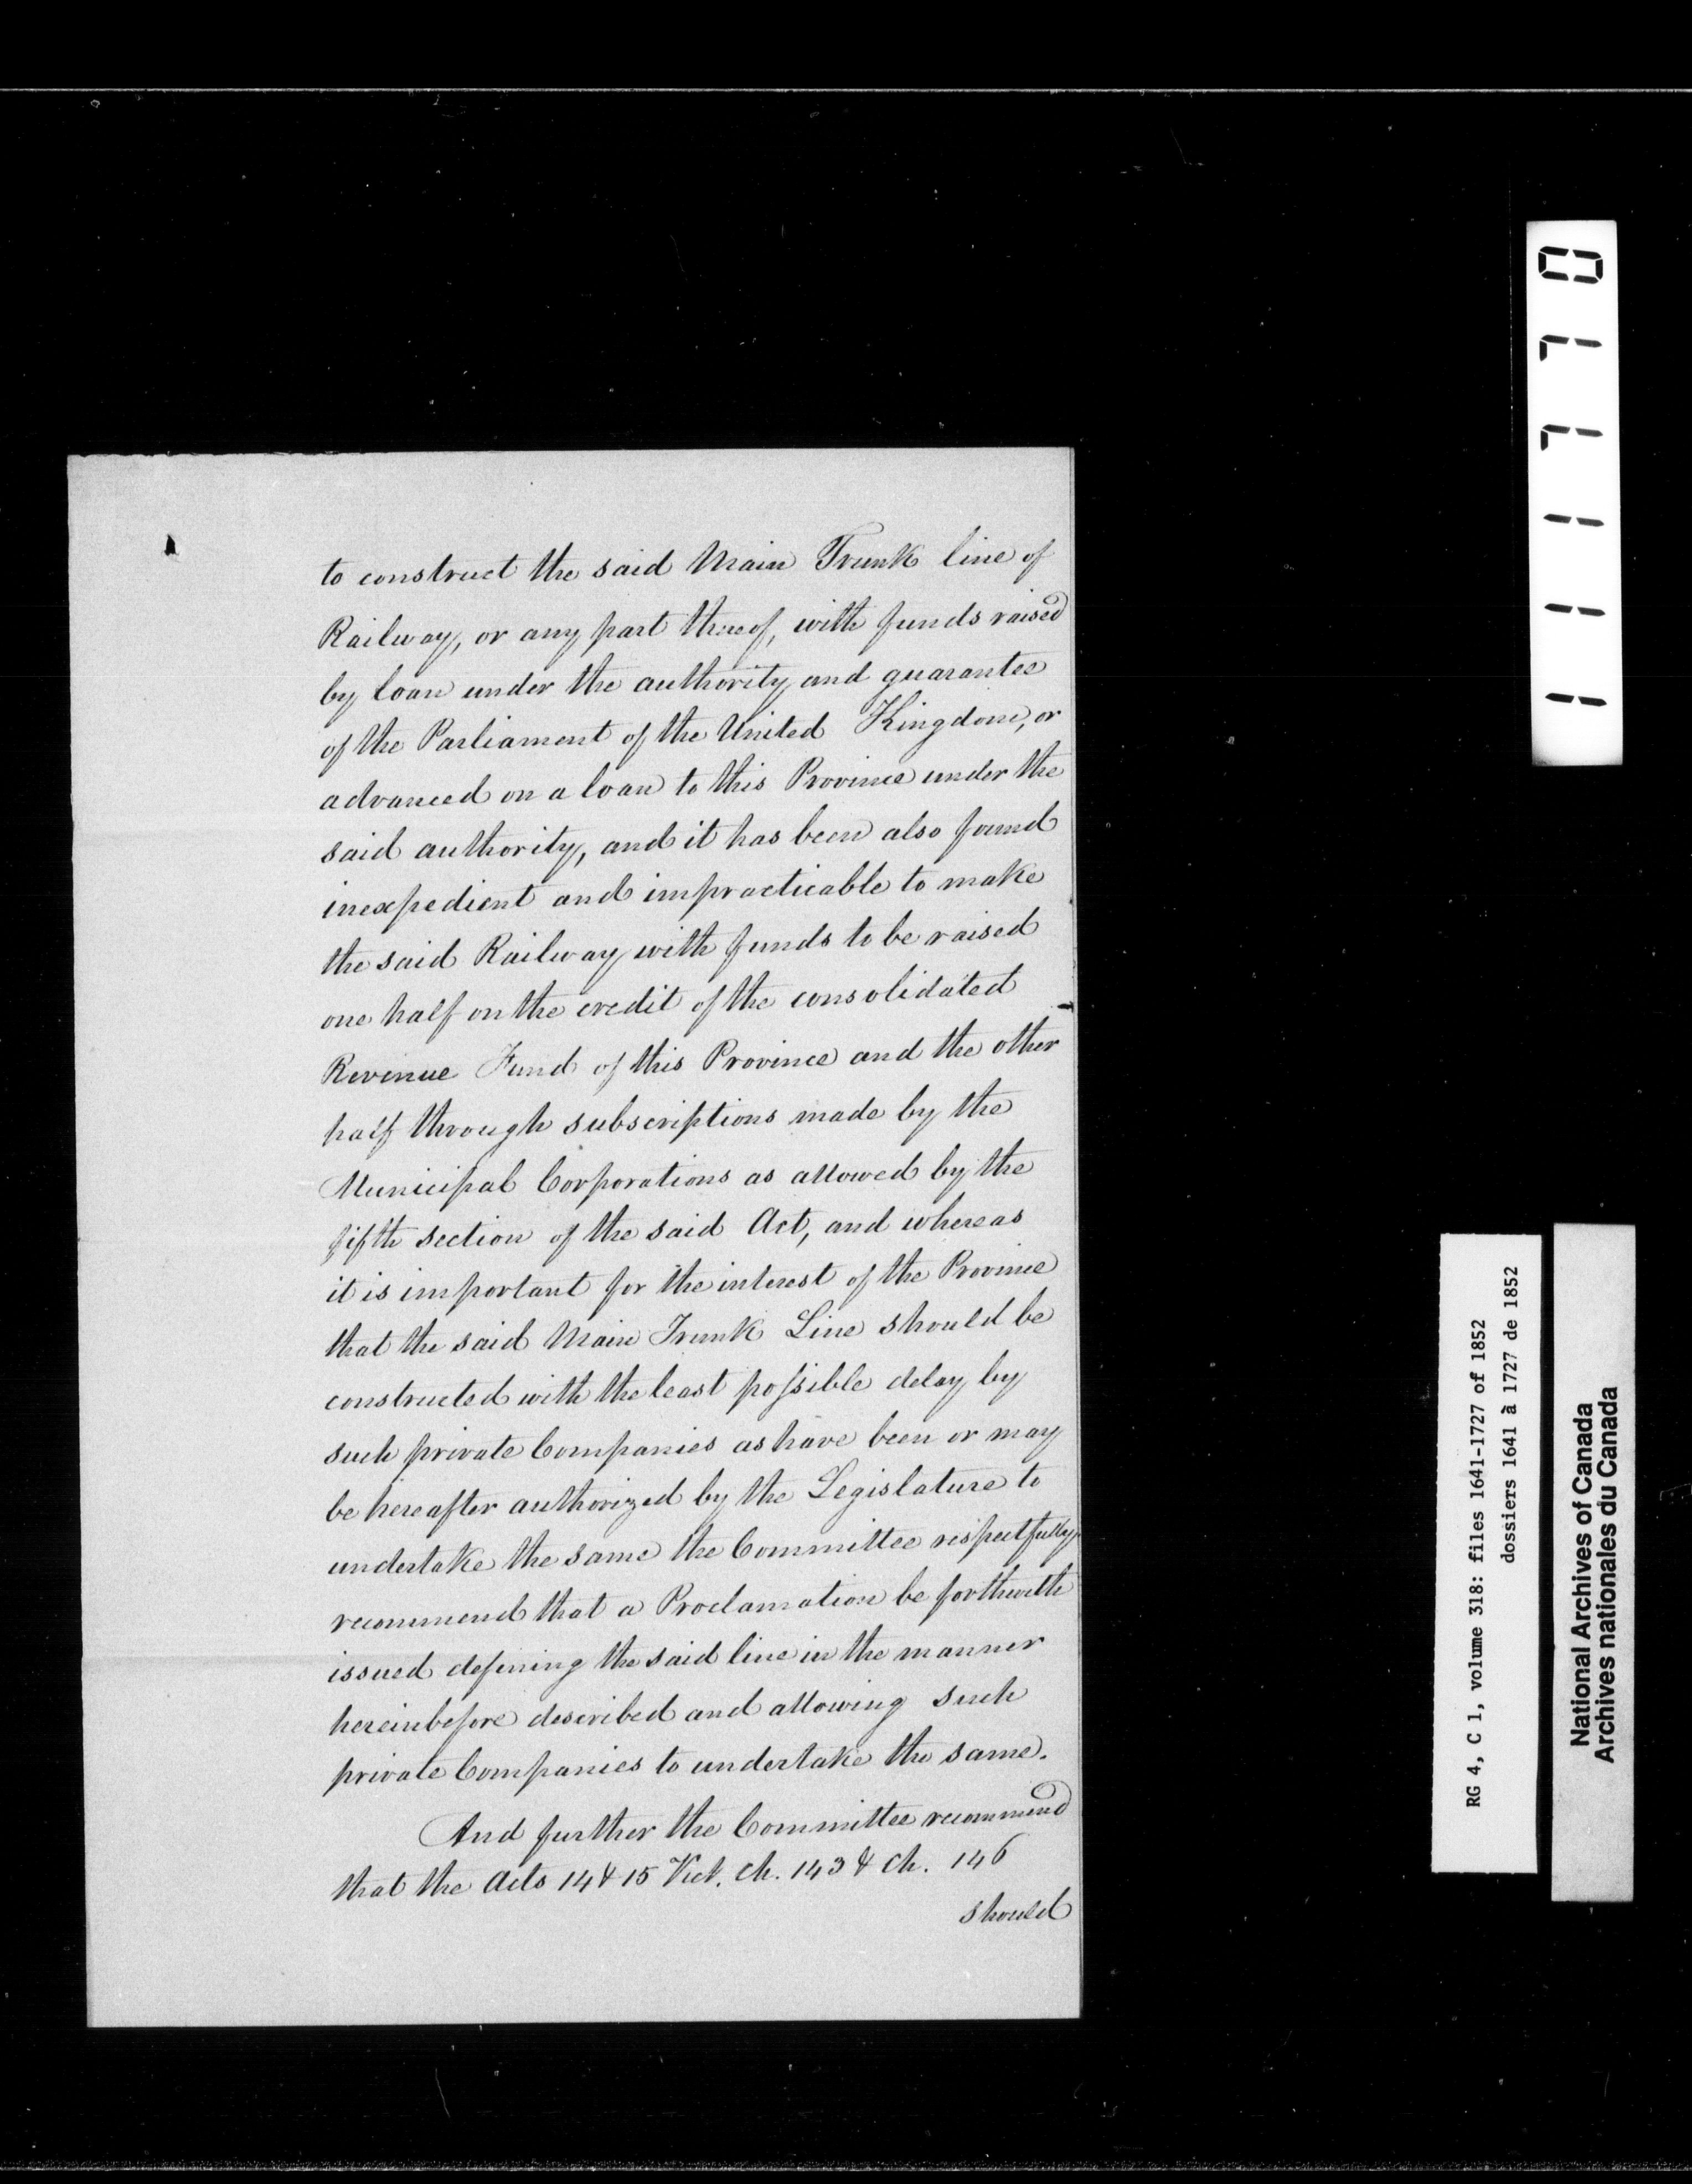 to construct the said Main Trunk line of
Railway, or any part thereof, with funds raised
by loan under the authority and guarantee
of the Parliament of the United Kingdom, or
advanced on a loan to this Province under the
said authority, and it has been also found
inexpedient and impracticable to make
the said Railway with funds to be raised
one half on the credit of the consolidated
Revenue Fund of this Province and the other
half through subscriptions made by the
Municipal Corporations as allowed by the
fifth section of the said Act, and whereas
it is important for the interest of the Province
that the said Main Trunk Line should be
constructed with the least possible delay by
such private Companies as have been or may
be hereafter authorized by the Legislature to
undertake the same the Committee respectfully
recommend that a Proclamation be forthwith
issued defining the said line in the manner
hereinbefore described and allowing such
private Companies to undertake the same.
And further the Committee recommend
that the Acts 14 & 15 Vict. Ch. 143 & Ch. 146
should
111770
RG 4, C 1, volume 318: files 1641-1727 of 1852
dossiers 1641 à 1727 de 1852
National Archives of Canada
Archives nationales du Canada